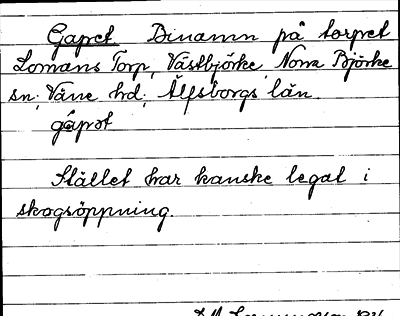 Gapet Binamn på torpet
Lomans Torp, Västbjörke, Norra Björke
sn; Väne hd; Älfsborgs län.
gápət
Stället har kanske legat i
skogsöppning.